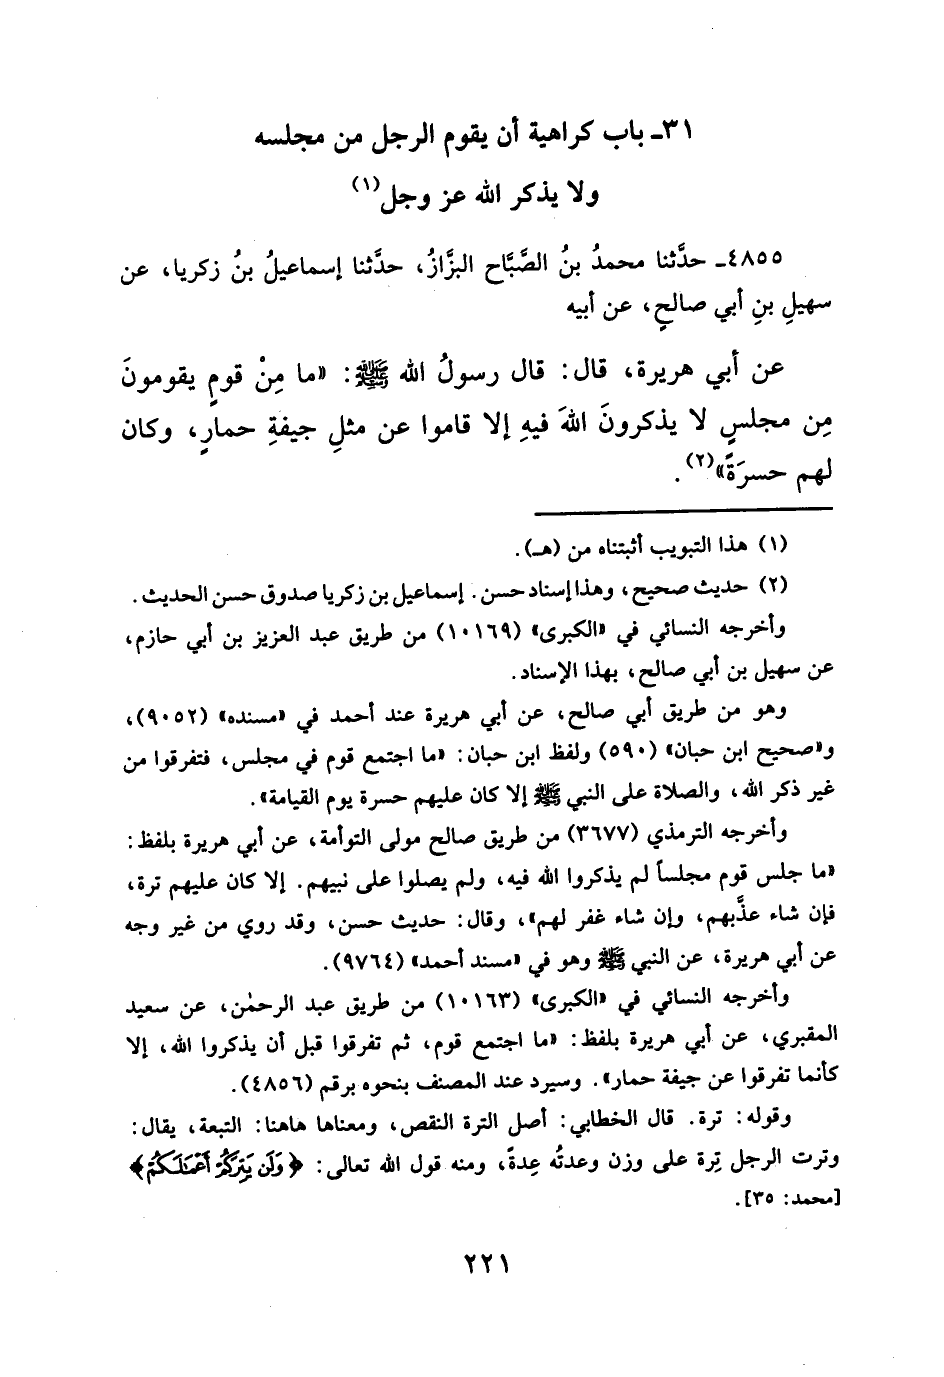 ٣١ـ باب كراهية أن يقوم الرجل من مجلسه
ولا يذكر الله عز وجل(١)
٤٨٥٥ـ حدَّثنا محمدُ بنُ الصَّبَّاح البزَّازُ، حدَّثنا إسماعيلُ بنُ زكريا، عن
سهيلِ بنِ أبي صالحٍ، عن أبيه
عن أبي هريرة، قال: قال رسولُ الله ﷺ: «ما مِنْ قومٍ يقومونَ
مِن مجلسٍ لا يذكرونَ اللهَ فيهِ إلا قاموا عن مثلِ جيفةِ حمارٍ، وكان
لهم حسرَةً»(٢).
(١) هذا التبويب أثبتناه من (هـ).
(٢) حديث صحيح، وهذا إسناد حسن. إسماعيل بن زكريا صدوق حسن الحديث.
وأخرجه النسائي في «الكبرى» (١٠١٦٩) من طريق عبد العزيز بن أبي حازم،
عن سهيل بن أبي صالح، بهذا الإسناد.
وهو من طريق أبي صالح، عن أبي هريرة عند أحمد في «مسنده» (٩٠٥٢)،
و«صحيح ابن حبان» (٥٩٠) ولفظ ابن حبان: «ما اجتمع قوم في مجلس، فتفرقوا من
غير ذكر الله، والصلاة على النبي ﷺ إلا كان عليهم حسرة يوم القيامة».
وأخرجه الترمذي (٣٦٧٧) من طريق صالح مولى التوأمة، عن أبي هريرة بلفظ:
«ما جلس قوم مجلساً لم يذكروا الله فيه، ولم يصلوا على نبيهم. إلا كان عليهم ترة،
فإن شاء عذَّبهم، وإن شاء غفر لهم»، وقال: حديث حسن، وقد روي من غير وجه
عن أبي هريرة، عن النبي ﷺ وهو في «مسند أحمد» (٩٧٦٤).
وأخرجه النسائي في «الكبرى» (١٠١٦٣) من طريق عبد الرحمٰن، عن سعيد
المقبري، عن أبي هريرة بلفظ: «ما اجتمع قوم، ثم تفرقوا قبل أن يذكروا الله، إلا
كأنما تفرقوا عن جيفة حمار». وسيرد عند المصنف بنحوه برقم (٤٨٥٦).
وقوله: ترة. قال الخطابي: أصل الترة النقص، ومعناها هاهنا: التبعة، يقال:
وترت الرجل تِرة على وزن وعدتُه عِدةً، ومنه قول الله تعالى: ﴿وَلَن يَتِرَكُمْ أَعْمَٰلَكُمْ﴾
[محمد: ٣٥].
٢٢١